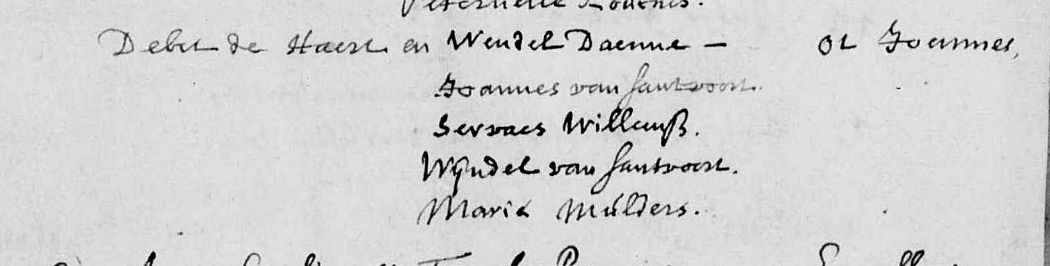 Peternelle
Debet de Haest en Wendel Daenne – ot Joannes,
Joannes van santvoort.
Servaes Willemß.
Wÿndel van santvoort.
Maria Mulders.